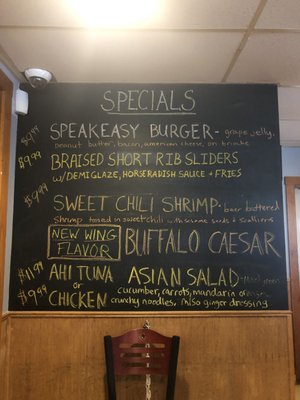 SPECIALS
$9.99 SPEAKEASY BURGER - grape jelly,
peanut butter, bacon, american cheese, on brioche
$9.99 BRAISED SHORT RIB SLIDERS
W/DEMIGLAZE, HORSERADISH SAUCE + FRIES
$9.99 SWEET CHILI SHRIMP - beer battered
Shrimp tossed in sweet chili with sesame seeds & scallions
NEW WING
FLAVOR
BUFFALO CAESAR
$11.99 AHI TUNA
or
$9.99 CHICKEN
ASIAN SALAD - Mixed greens
cucumber, carrots, mandarin oranges
crunchy noodles, miso ginger dressing